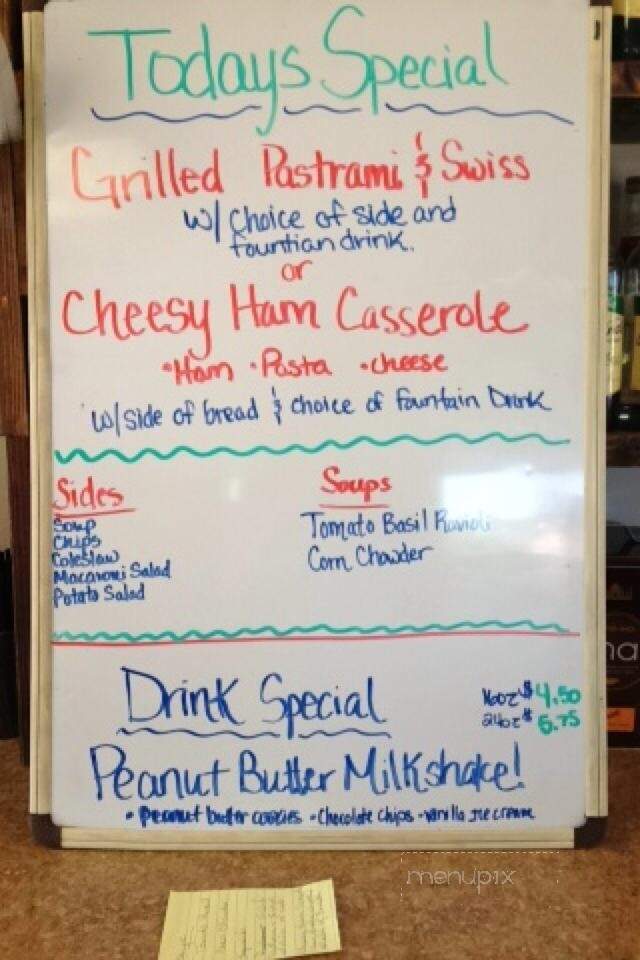 Todays Special
Grilled Pastrami & Swiss
w/ Choice of side and
fountian drink.
or
Cheesy Ham Casserole
•Ham •Pasta •cheese
w/side of bread & choice of Fountain Drink
Sides
Soup
Chips
Coleslaw
Macaroni Salad
Potato Salad
Soups
Tomato Basil Ravioli
Corn Chowder
Drink Special
16oz $4.50
24oz $5.75
Peanut Butter Milkshake!
•peanut butter cookies •Chocolate Chips •vanilla Ice cream
menupix